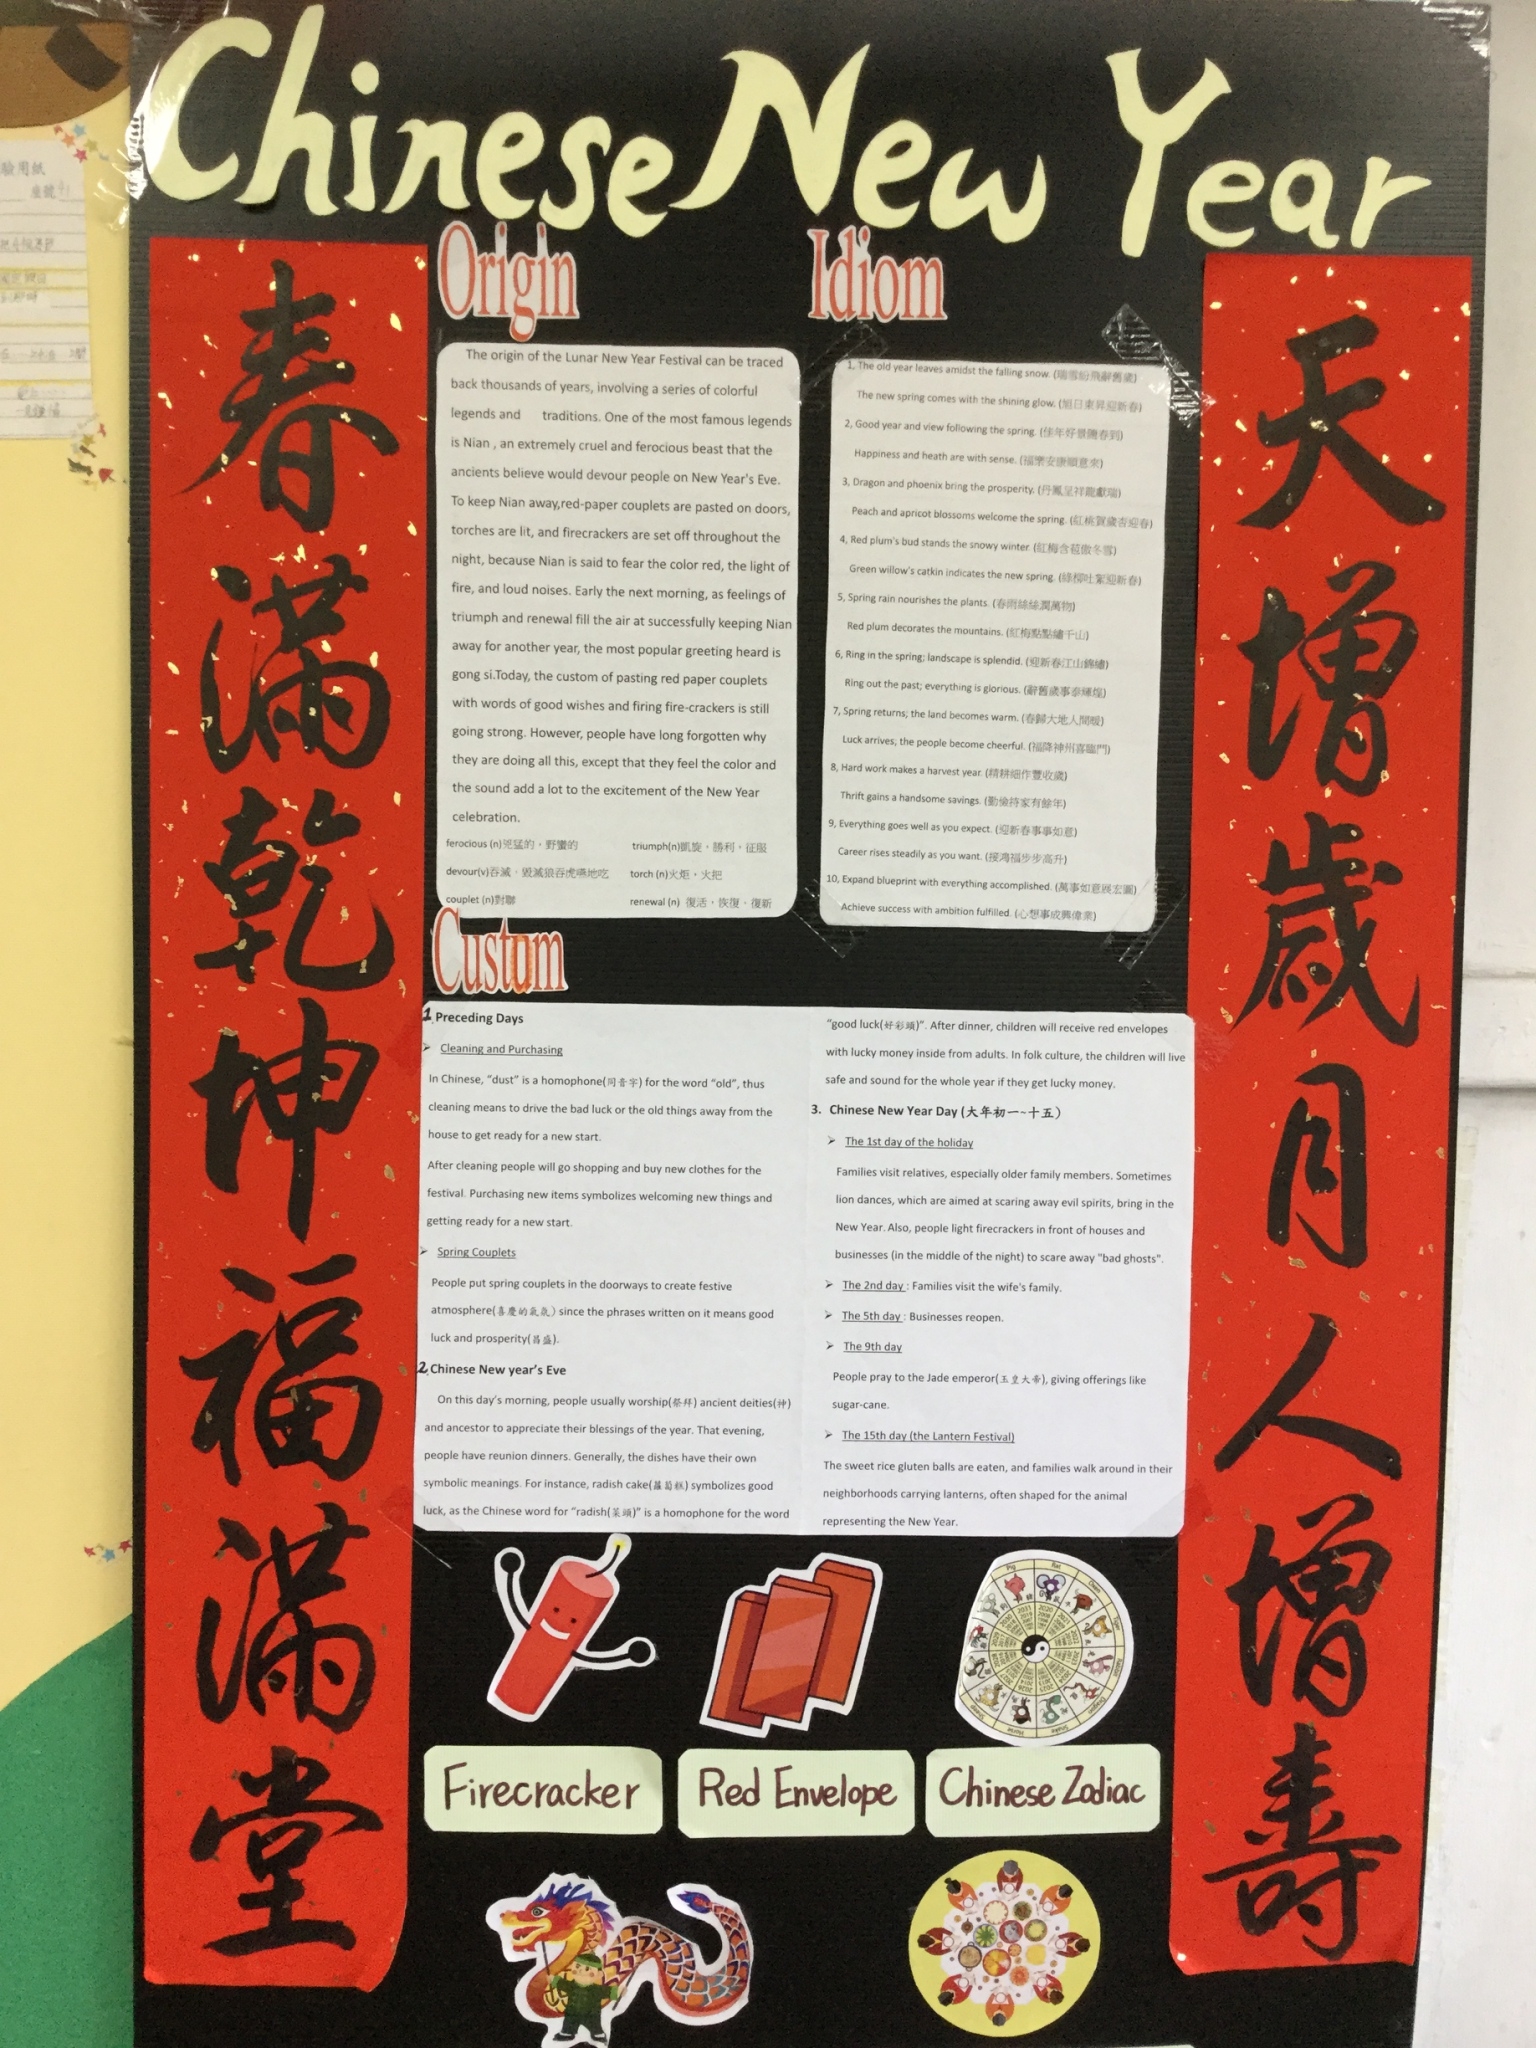 Chinese New Year
天增歲月人增壽
春滿乾坤福滿堂
Origin
The origin of the Lunar New Year Festival can be traced
back thousands of years, involving a series of colorful
legends and traditions. One of the most famous legends
is Nian , an extremely cruel and ferocious beast that the
ancients believe would devour people on New Year's Eve.
To keep Nian away,red-paper couplets are pasted on doors,
torches are lit, and firecrackers are set off throughout the
night, because Nian is said to fear the color red, the light of
fire, and loud noises. Early the next morning, as feelings of
triumph and renewal fill the air at successfully keeping Nian
away for another year, the most popular greeting heard is
gong si.Today, the custom of pasting red paper couplets
with words of good wishes and firing fire-crackers is still
going strong. However, people have long forgotten why
they are doing all this, except that they feel the color and
the sound add a lot to the excitement of the New Year
celebration.
ferocious (n)兇猛的，野蠻的 triumph(n)凱旋，勝利，征服
devour(v)吞滅，毀滅狼吞虎嚥地吃 torch (n)火炬，火把
couplet (n)對聯 renewal (n) 復活，恢復，復新
Idiom
1, The old year leaves amidst the falling snow. (瑞雪紛飛辭舊歲)
The new spring comes with the shining glow. (旭日東昇迎新春)
2, Good year and view following the spring. (佳年好景隨春到)
Happiness and heath are with sense. (福樂安康順意來)
3, Dragon and phoenix bring the prosperity. (丹鳳呈祥龍獻瑞)
Peach and apricot blossoms welcome the spring. (紅桃賀歲杏迎春)
4, Red plum's bud stands the snowy winter. (紅梅含苞傲冬雪)
Green willow's catkin indicates the new spring. (綠柳吐絮迎新春)
5, Spring rain nourishes the plants. (春雨絲絲潤萬物)
Red plum decorates the mountains. (紅梅點點繡千山)
6, Ring in the spring; landscape is splendid. (迎新春江山錦繡)
Ring out the past; everything is glorious. (辭舊歲事泰輝煌)
7, Spring returns; the land becomes warm. (春歸大地人間暖)
Luck arrives, the people become cheerful. (福降神州喜臨門)
8, Hard work makes a harvest year. (精耕細作豐收歲)
Thrift gains a handsome savings. (勤儉持家有餘年)
9, Everything goes well as you expect. (迎新春事事如意)
Career rises steadily as you want. (接鴻福步步高升)
10, Expand blueprint with everything accomplished. (萬事如意展宏圖)
Achieve success with ambition fulfilled. (心想事成興偉業)
Custum
1 Preceding Days
➢ Cleaning and Purchasing
In Chinese, "dust" is a homophone(同音字) for the word "old", thus
cleaning means to drive the bad luck or the old things away from the
house to get ready for a new start.
After cleaning people will go shopping and buy new clothes for the
festival. Purchasing new items symbolizes welcoming new things and
getting ready for a new start.
➢ Spring Couplets
People put spring couplets in the doorways to create festive
atmosphere(喜慶的氣氛) since the phrases written on it means good
luck and prosperity(昌盛).
2 Chinese New year's Eve
On this day's morning, people usually worship(祭拜) ancient deities(神)
and ancestor to appreciate their blessings of the year. That evening,
people have reunion dinners. Generally, the dishes have their own
symbolic meanings. For instance, radish cake(蘿蔔糕) symbolizes good
luck, as the Chinese word for "radish(菜頭)" is a homophone for the word
"good luck(好彩頭)". After dinner, children will receive red envelopes
with lucky money inside from adults. In folk culture, the children will live
safe and sound for the whole year if they get lucky money.
3. Chinese New Year Day (大年初一~十五)
➢ The 1st day of the holiday
Families visit relatives, especially older family members. Sometimes
lion dances, which are aimed at scaring away evil spirits, bring in the
New Year. Also, people light firecrackers in front of houses and
businesses (in the middle of the night) to scare away "bad ghosts".
➢ The 2nd day : Families visit the wife's family.
➢ The 5th day : Businesses reopen.
➢ The 9th day
People pray to the Jade emperor(玉皇大帝), giving offerings like
sugar-cane.
➢ The 15th day (the Lantern Festival)
The sweet rice gluten balls are eaten, and families walk around in their
neighborhoods carrying lanterns, often shaped for the animal
representing the New Year.
Firecracker
Red Envelope
Chinese Zodiac